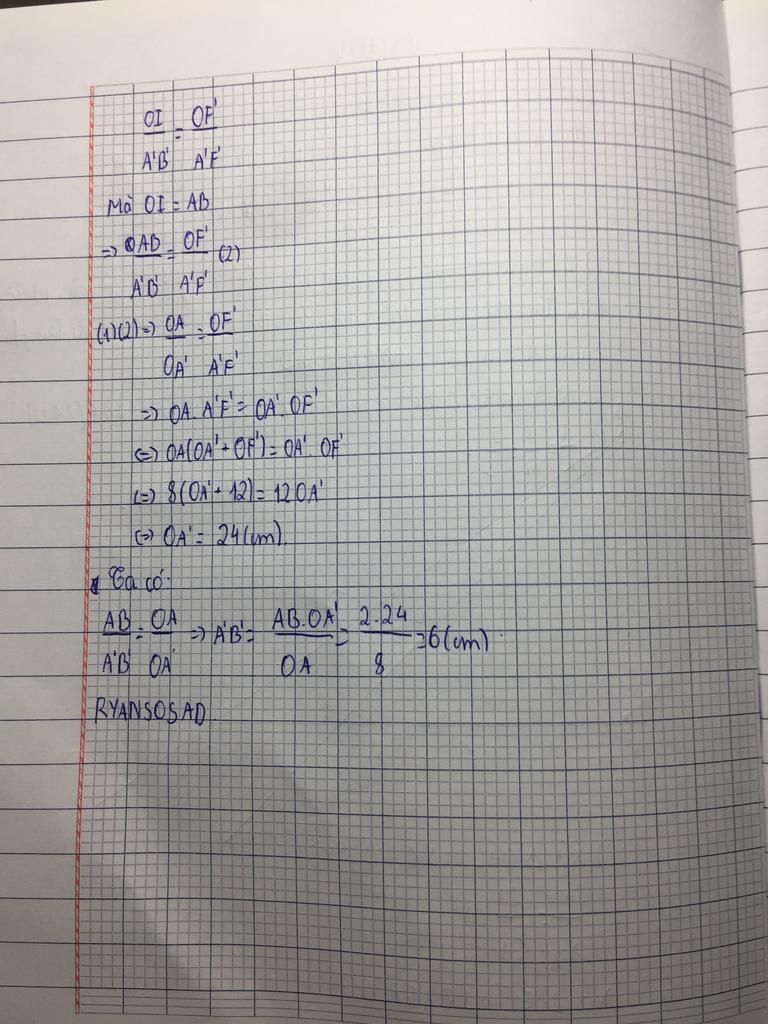 OI/A'B' = OF'/A'F'
Mà OI = AB
=> AB/A'B' = OF'/A'F' (2)
(1)(2) => OA/OA' = OF'/A'F'
=> OA. A'F' = OA'. OF'
<=> OA(OA' + OF') = OA'. OF'
<=> 8(OA' + 12) = 12OA'
<=> OA' = 24(cm).
Ta có:
AB/A'B' = OA/OA' => A'B' = AB.OA'/OA = 2.24/8 = 6(cm).
RYANSOSAD